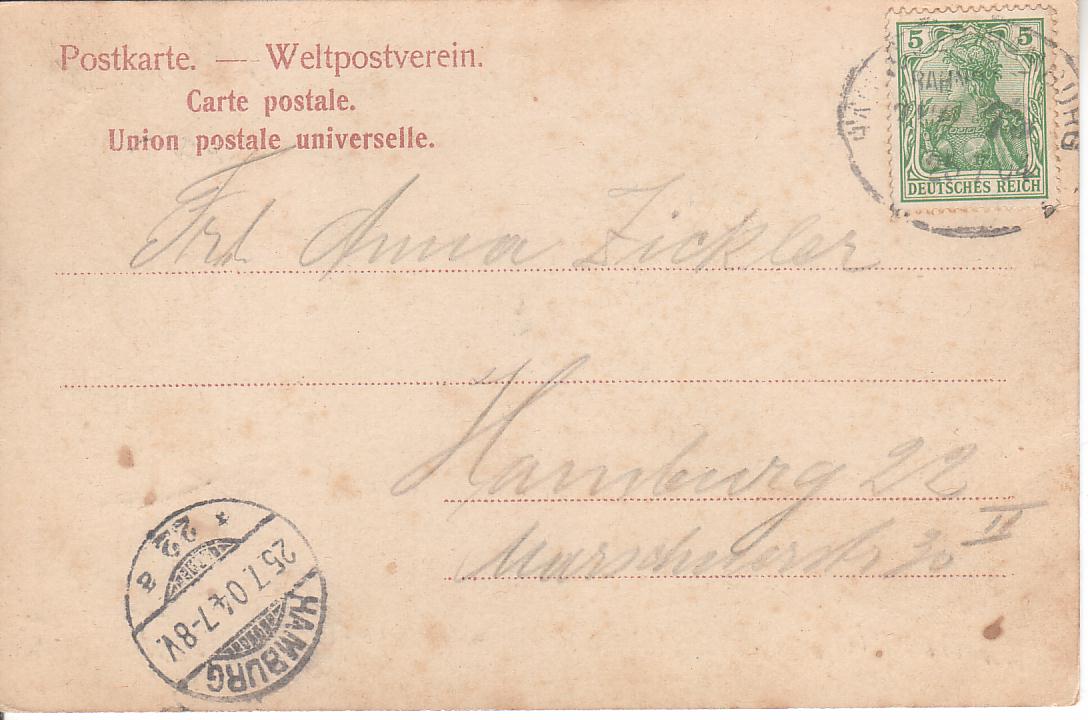 Postkarte. — Weltpostverein.
Carte postale.
Union postale universelle.
5 5
DEUTSCHES REICH
BURG
Frl Anna Zickler
Hamburg 22
Marschnerstr 30 II
HAMBURG
25.7.04.7-8V.
* 22 a